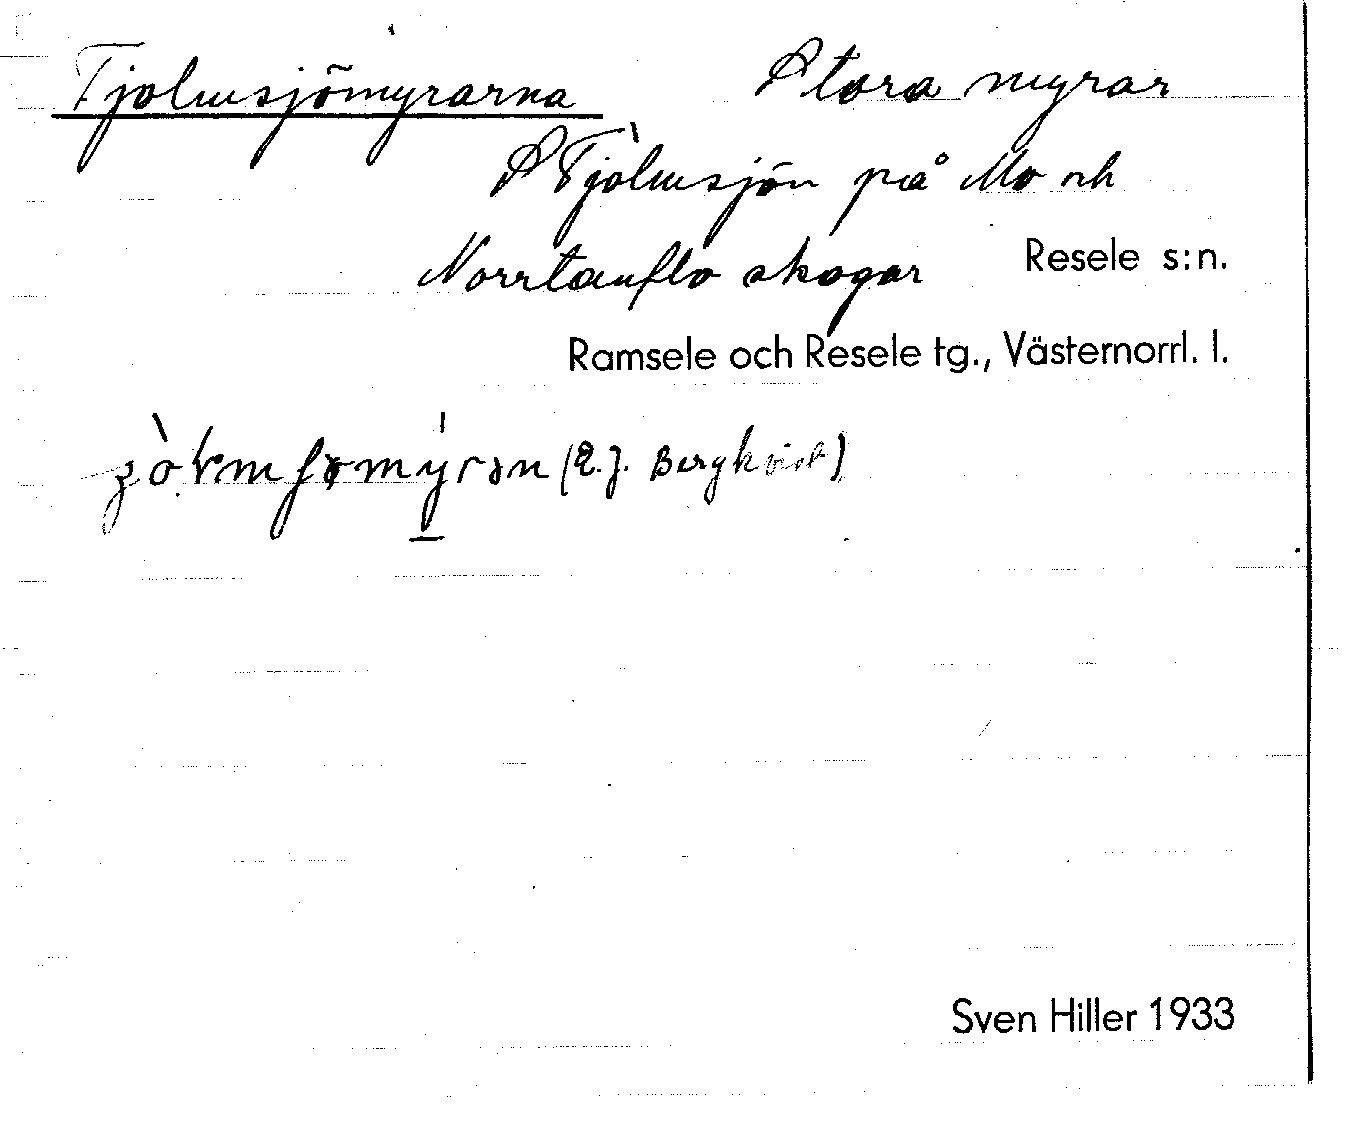 Tjolmsjömyrarna Stora myrar
S Tjolmsjön på Mo och
Norrtanflo skogar Resele s:n.
Ramsele och Resele tg., Västernorrl. l.
(E.J. Bergkvist)
Sven Hiller 1933